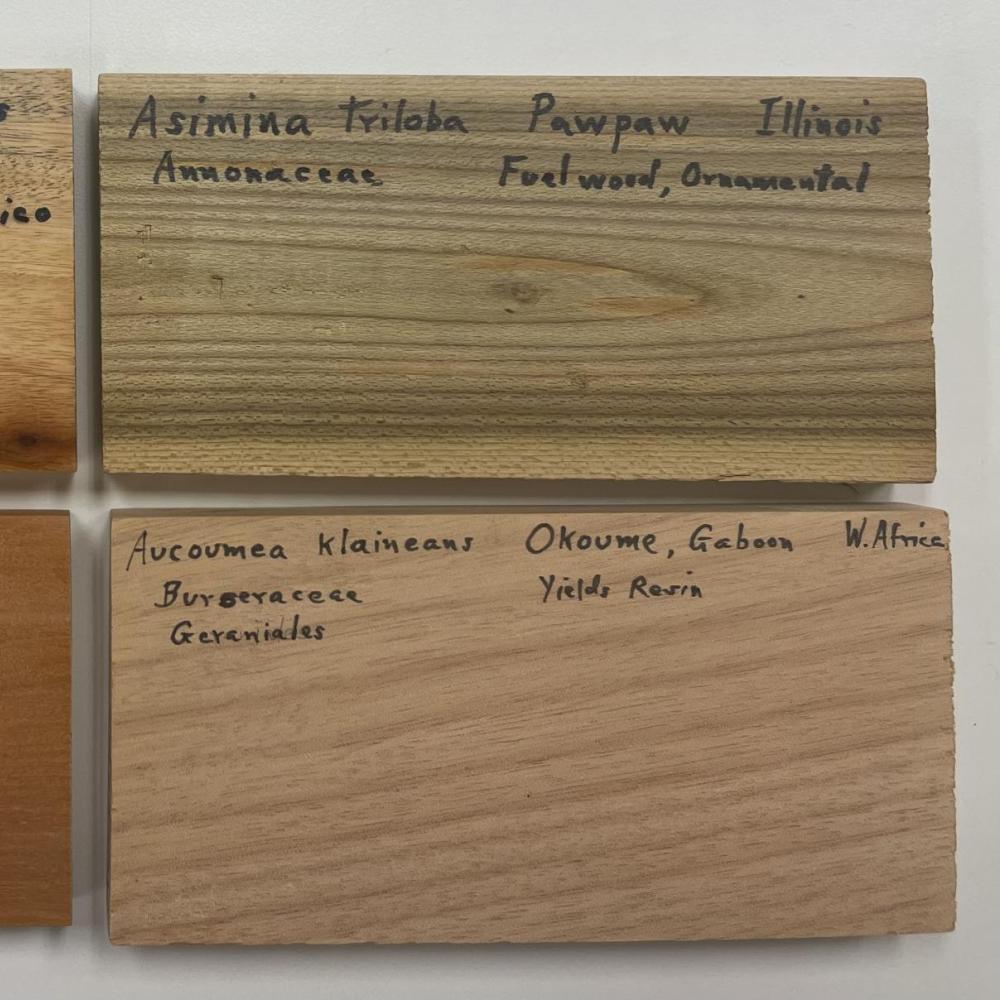 Asimina triloba Pawpaw Illinois
Annonaceae Fuelwood, Ornamental
ico
Aucoumea klaineans Okoume, Gaboon W.Africa
Burseraceae Yields Resin
Geraniales